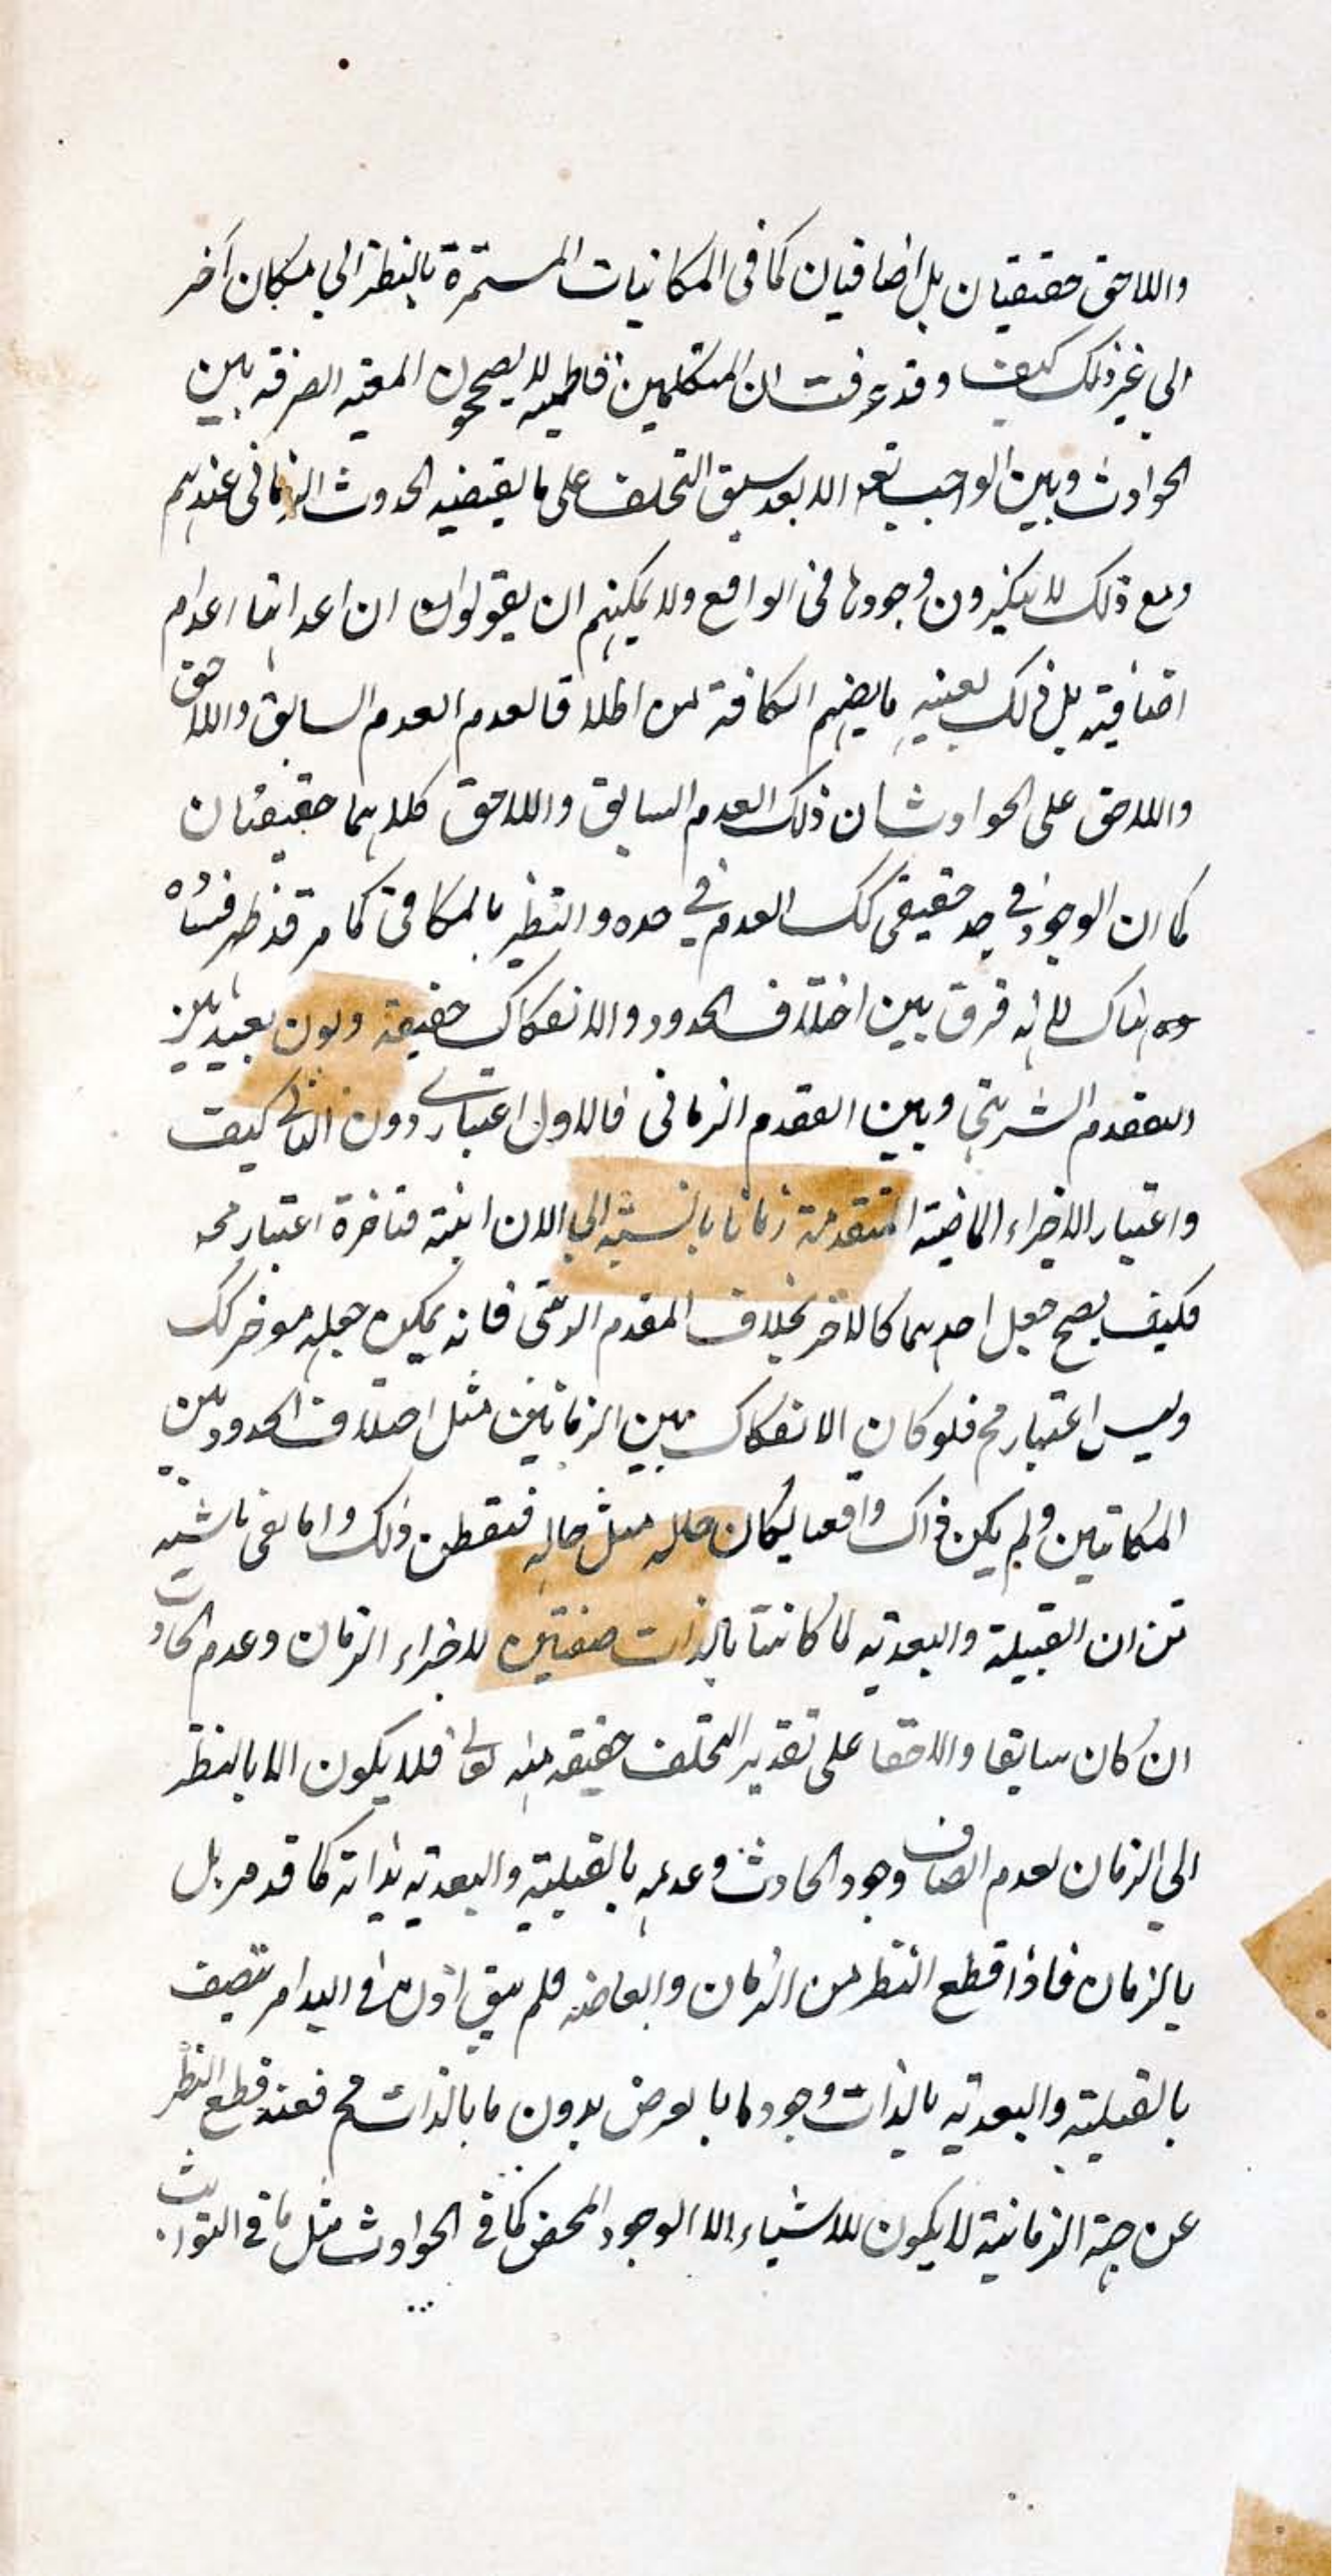 واللاحق حقيقيان بل اضافيان كما فى المكانيات المستمرة بالنظر الي مكان آخر
الي غير ذلك كيف وقد عرفت ان المتكلمين قاطبة لا يصححون المعية الصرفة بين
الحوادث وبين الواجب تعه الا بعد سبق التخلف على ما يقتضيه الحدوث الزمانى عندهم
ومع ذلك لا ينكرون وجودها فى الواقع ولا يمكنهم ان يقولوا ان اعدامها اعدام
اضافية بل ذلك بعينه ما يضهم الكافة من اطلاق العدم العدم السابق واللاحق
واللاحق على الحوادث ان ذلك العدم السابق واللاحق كلاهما حقيقتان
كما ان الوجود في حد حقيقى كك العدم في حده والنظير بالمكافى كما مر قد ظهر فساده
هناك انه فرق بين اختلاف الحدود والانفكاك حقيقة وبون بعيد بين
التقدم الشرينى وبين التقدم الزمانى فالاول اعتبارى دون الثانى كيف
واعتبار الاجزاء الماضية المتقدمة زمانا بالنسبة الي الان ابنية متاخرة اعتبار محه
فكيف يصح جعل احدهما كالاخر بخلاف المقدم الرتبى فانه يمكن جعله موخر كك
وليس اعتبار مح فلو كان الانفكاك بين الزمانين مثل اختلاف الحدود بين
المكانين ولم يكن ذاك واقعيا لكان حاله مثل حاله فتفطن ذلك واما بقى ناشية
من ان القبيلة والبعدية لما كانتا بالذات صفتين لاجزاء الزمان وعدم الحادث
ان كان سابقا والاحقا على تقدير التخلف حقيقة منه تعالى فلا يكون الا بالنظر
الي الزمان لعدم اتصاف وجود الحادث وعدمه بالقبلية والبعدية بذاته كما قد مر بل
بالزمان فاذا قطع النظر من الزمان والعاضه فلم يبق اذن فى البدامر تتصف
بالقبلية والبعدية بالذات وجود ما بالعرض بدون ما بالذات مح فعند قطع النظر
عن جهة الزمانية لا يكون للاشياء الا الوجود المحض كما فى الحوادث مثل ما فى الثوابث